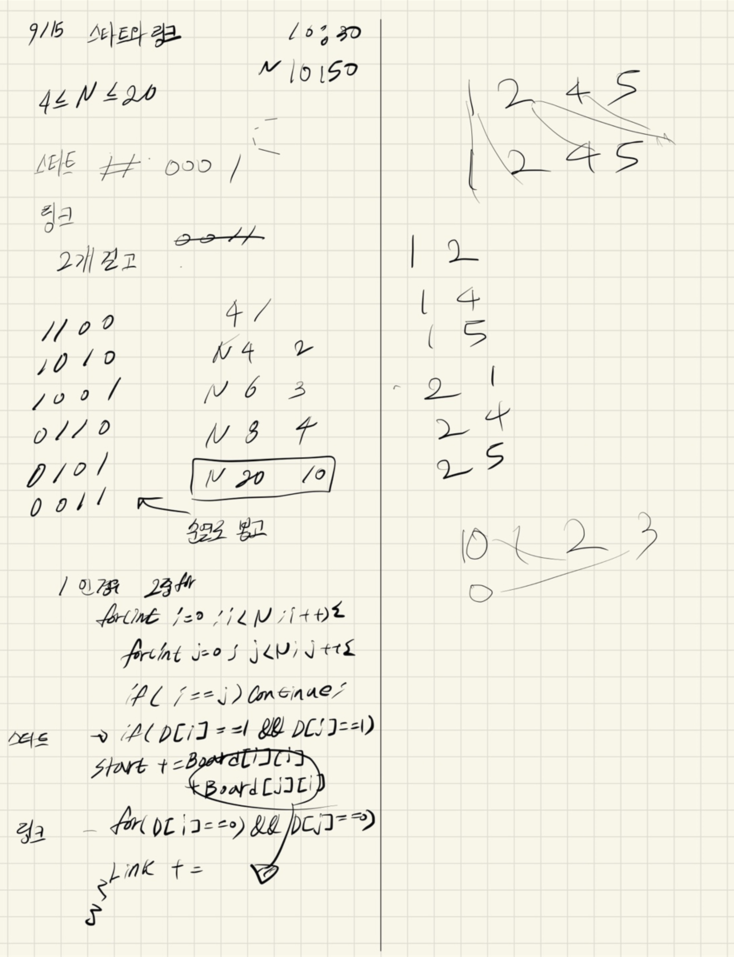 9/15 스타트와 링크 10:30
N 10:50
4 ≤ N ≤ 20
스타트 # 0001
링크
0011
2개 걸고
1100
1010
1001
0110
0101
0011
4 /
N 4 2
N 6 3
N 8 4
N 20 10
순열로 뽑고
1 인경우 2중for
for(int i=0; i<N; i++){
for(int j=0; j<N; j++{
if( i==j) Continue;
스타트 → if(D[i]==1 && D[j]==1)
start += Board[i][j]
+Board[j][i]
링크 - for(D[i]==0) && D[j]==0)
Link +=
}
}
1 2 4 5
1 2 4 5
1 2
1 4
1 5
2 1
2 4
2 5
10 1 2 3
0